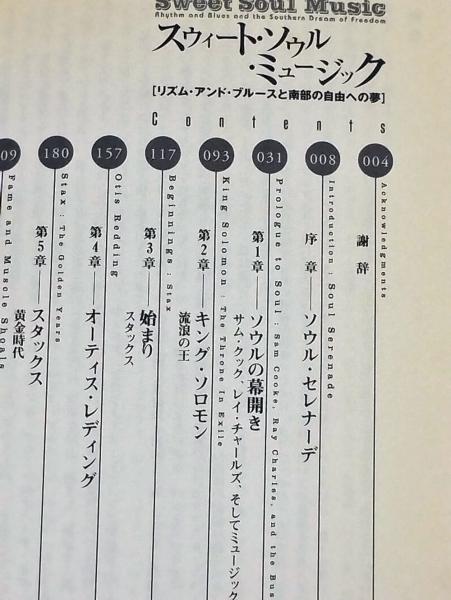 Sweet Soul Music
Rhythm and Blues and the Southern Dream of Freedom
スウィート・ソウル
・ミュージック
[リズム・アンド・ブルースと南部の自由への夢]
Contents
004
Acknowledgments
謝辞
008
Introduction : Soul Serenade
序章——ソウル・セレナーデ
031
Prologue to Soul : Sam Cooke, Ray Charles, and the Bus
第1章——ソウルの幕開き
サム・クック、レイ・チャールズ、そしてミュージック
093
King Solomon : The Throne In Exile
第2章——キング・ソロモン
流浪の王
117
Beginnings : Stax
第3章——始まり
スタックス
157
Otis Redding
第4章——オーティス・レディング
180
Stax : The Golden Years
第5章——スタックス
黄金時代
09
Fame and Muscle Shoals